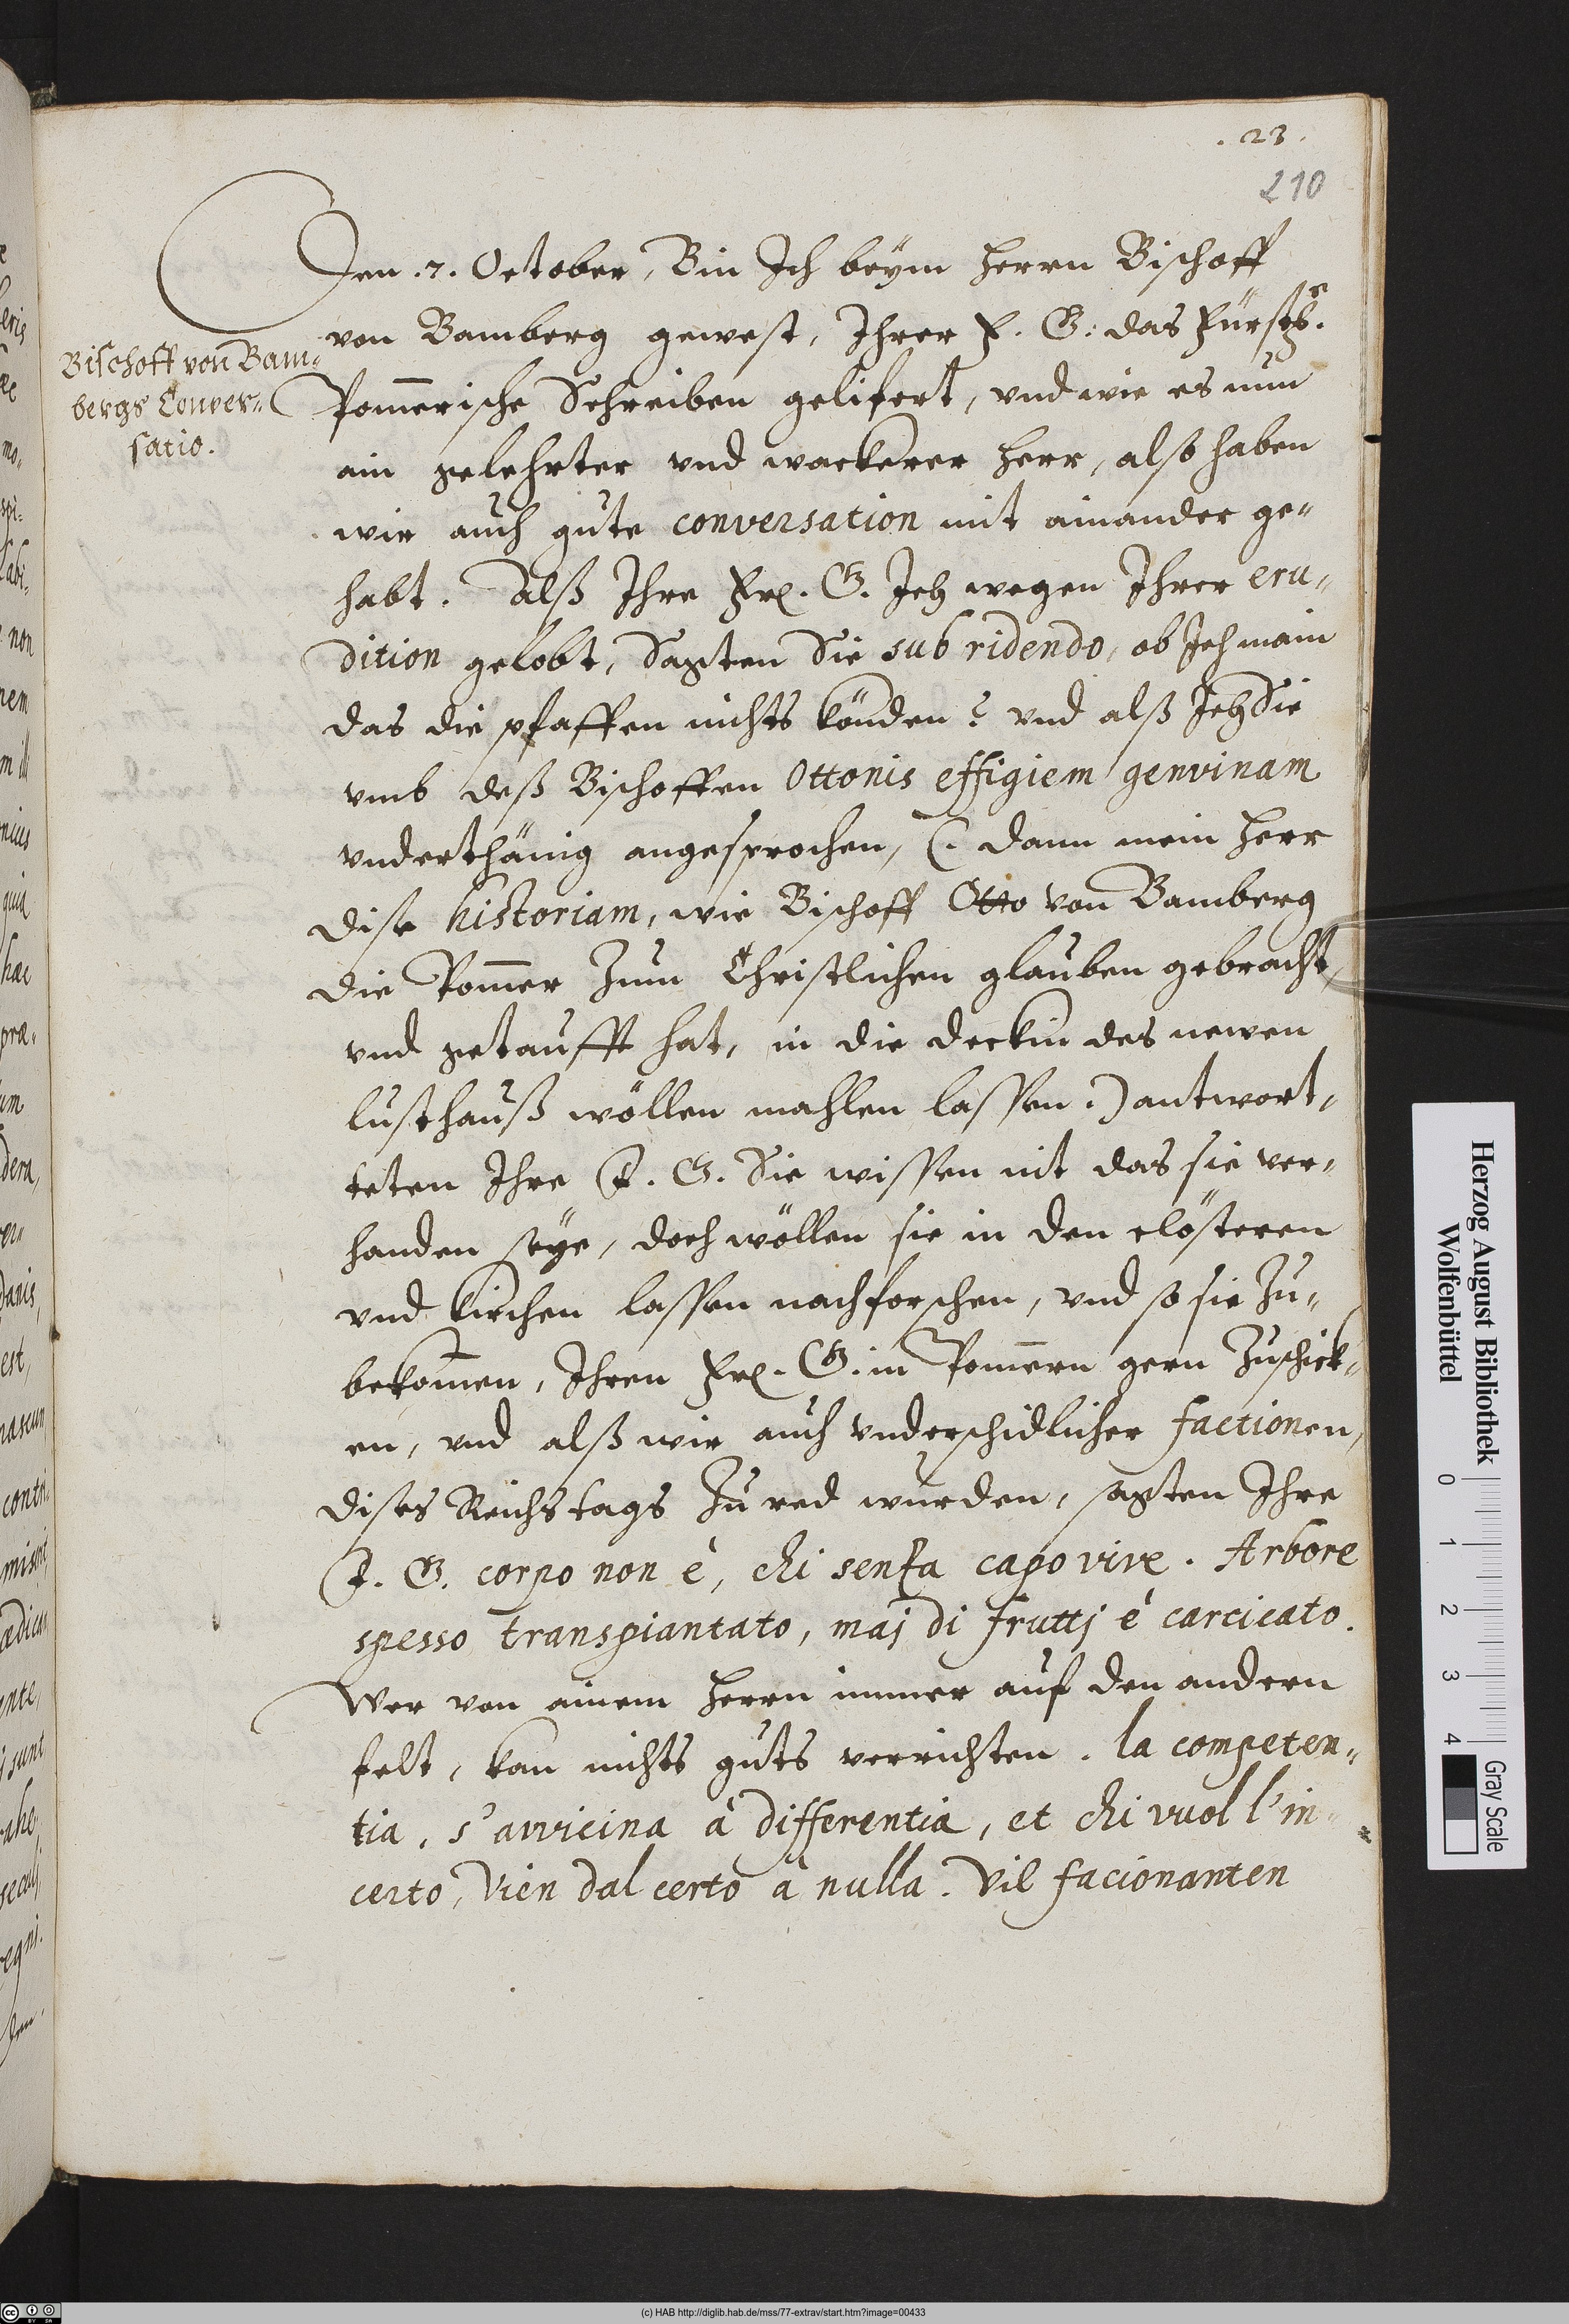 . 23.
210
Den .7. October, Bin Ich beÿm Herrn Bischoff
von Bamberg gewest, Ihrer F. G: das Fürstl.
Bischoff von Bam-
bergs Conver-
satio.
Pom̄erische Schreiben gelifert, vnd wie es nun
ain gelehrter vnd wackerer Herr, also haben
wir auch gute conversation mit ainander ge-
habt. Alß Ihre Frl. G. Ich wegen Ihrer eru-
dition gelobt, Sagten Sie subridendo, ob Ich main
das die pfaffen nichts könden? vnd alß Ich Sie
vmb deß Bischoffen Ottonis effigiem genvinam
vnderthänig angesprochen, (. dann mein Herr
dise historiam, wie Bischoff Otto von Bamberg
die Pom̄er zum Christlichen glauben gebracht,
vnd getaufft hat, in die deckin des newen
lusthauß wöllen mahlen lassen.) antwort-
teten Ihre F. G. Sie wissen nit das sie ver-
handen seÿe, doch wöllen sie in den clösteren
vnd kirchen lassen nachforschen, vnd so sie zu-
bekom̄en, Ihren Frl. G. in Pom̄ern gern zuschick-
en, vnd alß wir auch vnderschidlicher factionen,
dises Reichstags zu red wurden, sagten Ihre
F. G. corpo non è, chi senza capo vive. Arbore
spesso transpiantato, maj di fruttj è carcicato.
Wer von ainem Herrn immer auf den andern
felt, kan nichts guts verrichten. la competen-
tia, s'avvicina à differentia, et chi vuol l'in-
certo, vien dal certo à nulla. Vil facionanten